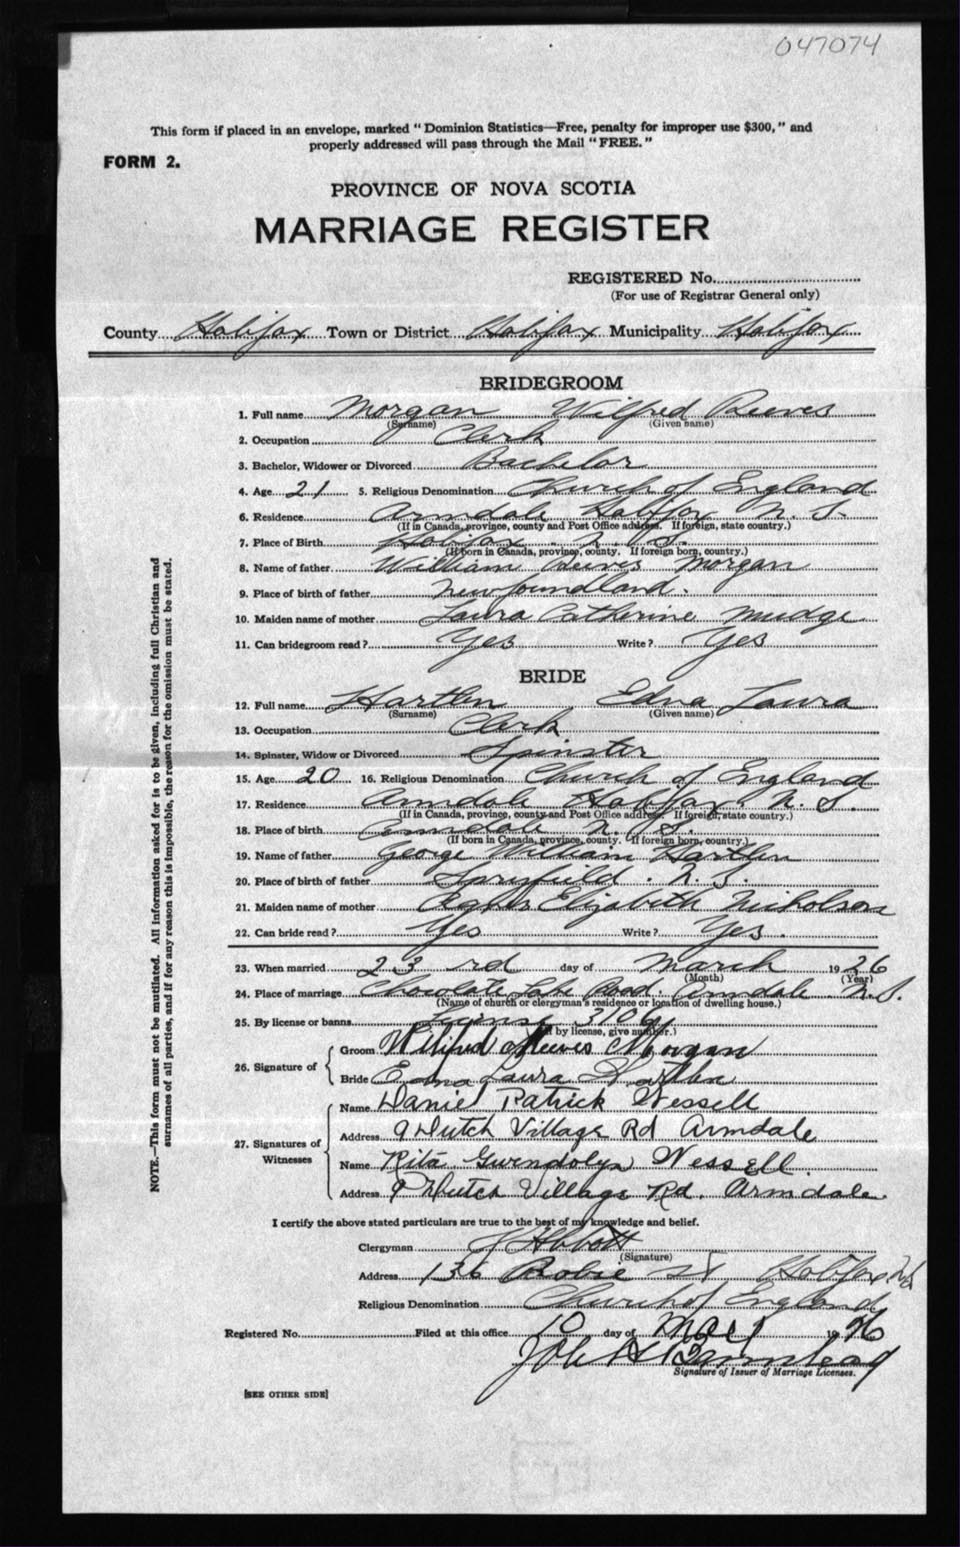 047074
This form if placed in an envelope, marked "Dominion Statistics—Free, penalty for improper use $300," and
properly addressed will pass through the Mail "FREE."
FORM 2.
PROVINCE OF NOVA SCOTIA
MARRIAGE REGISTER
REGISTERED No.
(For use of Registrar General only)
County Halifax Town or District Halifax Municipality Halifax
BRIDEGROOM
1. Full name Morgan Wilfred Reeves
(Surname) (Given name)
2. Occupation Clerk
3. Bachelor, Widower or Divorced Bachelor
4. Age 21 5. Religious Denomination Church of England
6. Residence Armdale Halifax N. S.
(If in Canada, province, county and Post Office address. If foreign, state country.)
7. Place of Birth Halifax N. S.
(If born in Canada, province, county. If foreign born, country.)
8. Name of father William Reeves Morgan
9. Place of birth of father Newfoundland.
10. Maiden name of mother Laura Catherine Mudge
11. Can bridegroom read? Yes Write? Yes
BRIDE
12. Full name Hartlen Edna Laura
(Surname) (Given name)
13. Occupation Clerk
14. Spinster, Widow or Divorced Spinster
15. Age 20 16. Religious Denomination Church of England
17. Residence Armdale Halifax N. S.
(If in Canada, province, county and Post Office address. If foreign, state country.)
18. Place of birth Armdale N. S.
(If born in Canada, province, county. If foreign born, country.)
19. Name of father George William Hartlen
20. Place of birth of father Spryfield. N. S.
21. Maiden name of mother Agnes Elizabeth Nicholson
22. Can bride read? Yes Write? Yes.
23. When married 23rd day of March 1926
(Month) (Year)
24. Place of marriage Chocolate Lake Road. Armdale N.S.
(Name of church or clergyman's residence or location of dwelling house.)
25. By license or banns License 3106
(If by license, give number.)
26. Signature of
Groom Wilfred Reeves Morgan
Bride Edna Laura Hartlen
27. Signatures of Witnesses
Name Daniel Patrick Wessell
Address 9 Dutch Village Rd Armdale
Name Rita Gwendolyn Wessell.
Address 9 Dutch Village Rd. Armdale.
I certify the above stated particulars are true to the best of my knowledge and belief.
Clergyman Abbott
(Signature)
Address 136 Robie St Halifax NS
Religious Denomination Church of England
Registered No. Filed at this office 10 day of May 1926
Signature of Issuer of Marriage Licenses.
[SEE OTHER SIDE]
NOTE.—This form must not be mutilated. All information asked for is to be given, including full Christian and
surnames of all parties, and if for any reason this is impossible, the reason for the omission must be stated.